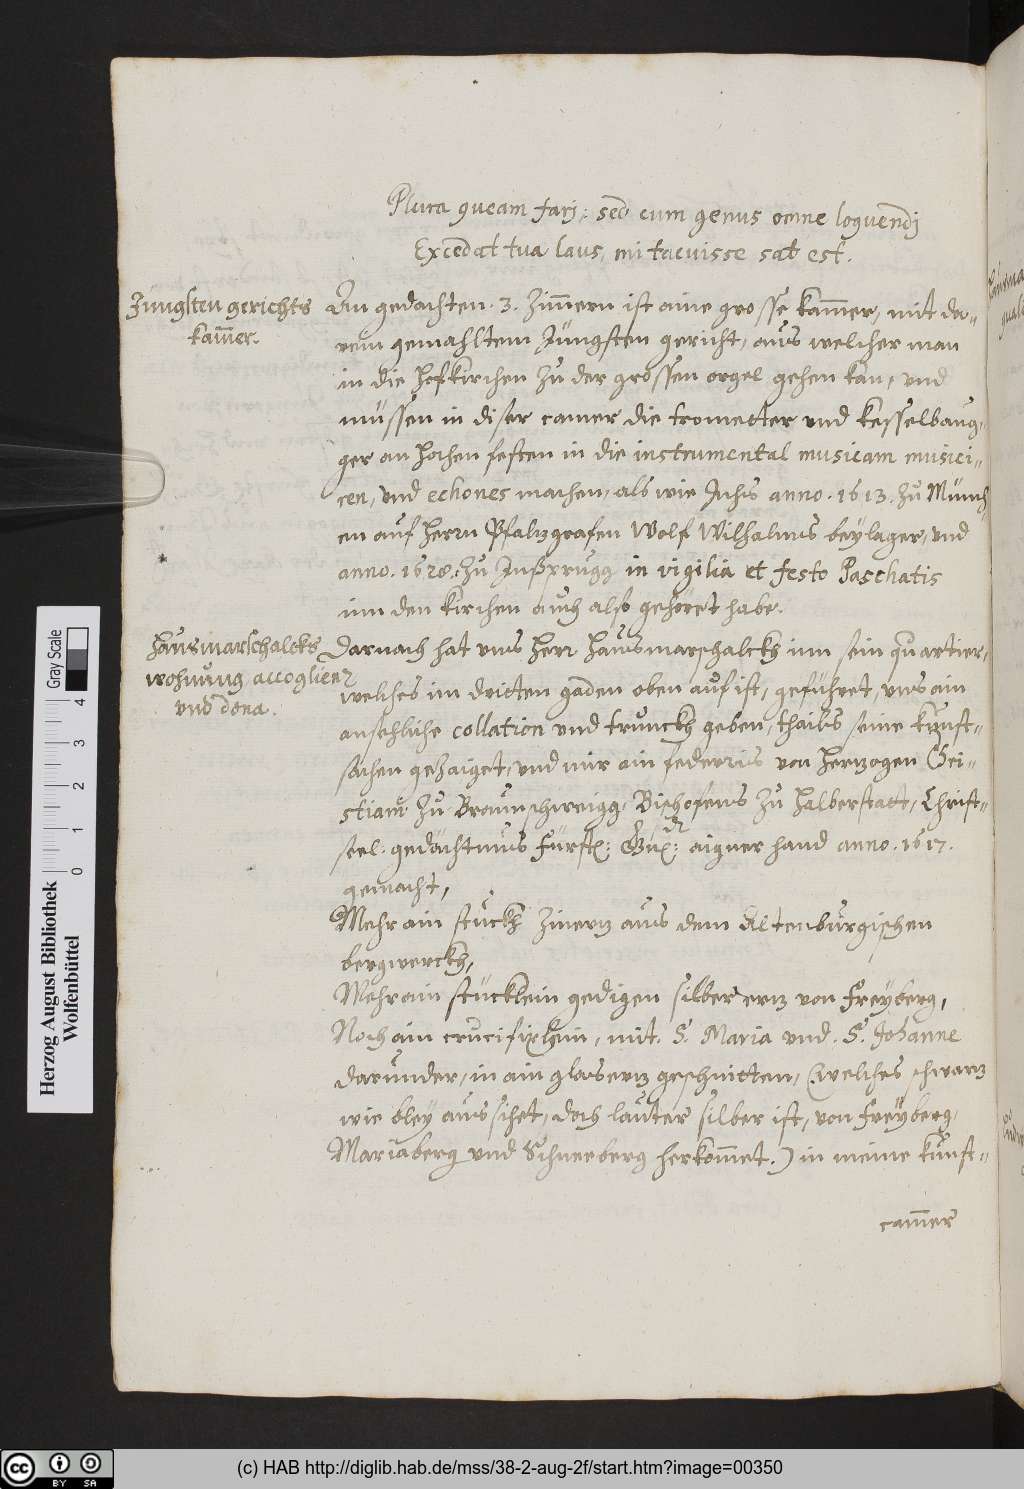 Plura queam farj: sed cum genus omne loquendj
Excedat tua laus, mi tacuisse sat est.
Jüngsten gerichts
kam̃er.
An gedachten .3. Zim̃ern ist aine grosse kam̃er, mit da-
rein gemahltem Jüngsten gericht, aus welcher man
in die hofkirchen zu der grossen orgel gehen kan, und
müssen in diser camer die trometter und kesselbaug-
ger an hochen festen in die instrumental musicam musici-
cen, und echones machen, als wie Ichs anno .1613. zu Münch-
en auf herrn Pfalzgrafen Wolf Wilhalms beylager, und
anno .1628. zu Inßprugg in vigilia et festo Paschatis
inn den kirchen auch also gehöret habe.
Hausmarschalcks
wohnung accoglienz
und dona.
Darnach hat uns herr Hausmarschalckh inn sein quartier,
welches im dritten gaden oben auf ist, geführet, uns ain
ansehliche collation und trunckh geben, thails seine kunst-
sachen gezaiget, und mir ain federris von herzogen Chri-
stian zu Braunschweigg, Bischofens zu Halberstatt, Christ-
seel: gedächtnus Fürstl: aigner hand anno .1617.
gemacht,
Mehr ain stuckh Zinerz aus dem Altenburgischen
bergwerckh,
Mehr ain stücklein gedigen silber erz von Freyberg,
Noch ain crucifixlein, mit S. Maria und S. Johanne
darunder, in ain glaserz geschnitten, (welches schwarz
wie bley aussihet, doch lauter silber ist, von Freyberg,
Mariaberg und Schneeberg herkom̃et.) in meine kunst-
cam̃er
Herzog August Bibliothek
Wolfenbüttel
0 1 2 3 4
Gray Scale
cc BY SA
(c) HAB http://diglib.hab.de/mss/38-2-aug-2f/start.htm?image=00350